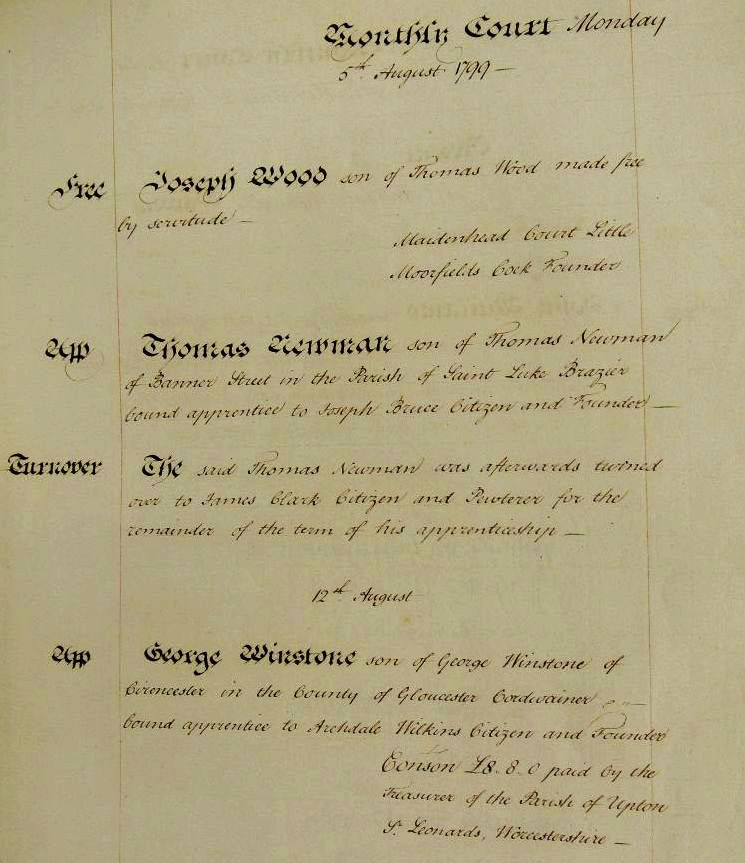 Monthly Court Monday
5th August 1799 —
Free Joseph Wood son of Thomas Wood made free
by servitude —
Maidenhead Court Little
Moorfields Cock Founder
App Thomas Newman son of Thomas Newman
of Banner Street in the Parish of Saint Luke Brazier
bound apprentice to Joseph Bruce Citizen and Founder —
Turnover The said Thomas Newman was afterwards turned
over to James Clark Citizen and Pewterer for the
remainder of the term of his apprenticeship —
12th August
App George Winstone son of George Winstone of
Cirencester in the County of Gloucester Cordwainer
bound apprentice to Archdale Wilkins Citizen and Founder
Conson £8.. 8.. 0 paid by the
Treasurer of the Parish of Upton
St. Leonards, Worcestershire —